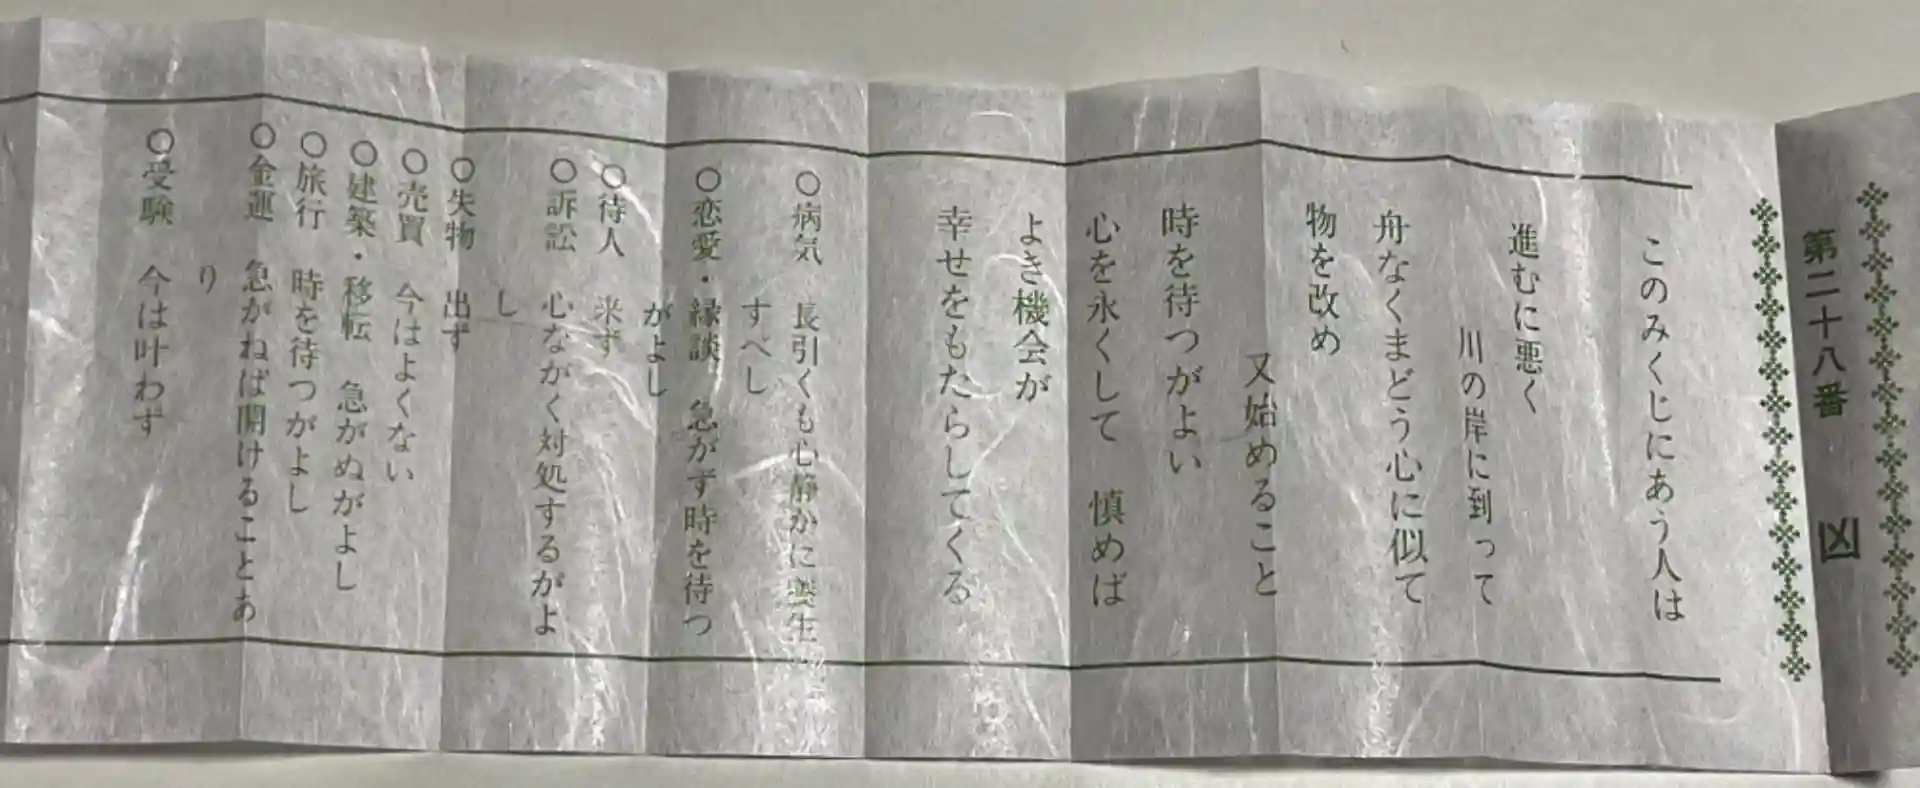 第二十八番 凶
このみくじにあう人は
進むに悪く
川の岸に到って
舟なくまどう心に似て
物を改め
又始めること
時を待つがよい
心を永くして 慎めば
よき機会が
幸せをもたらしてくる
○病気 長引くも心静かに養生
すべし
○恋愛・縁談 急がず時を待つ
がよし
○待人 来ず
○訴訟 心ながく対処するがよ
し
○失物 出ず
○売買 今はよくない
○建築・移転 急がぬがよし
○旅行 時を待つがよし
○金運 急がねば開けることあ
り
○受験 今は叶わず